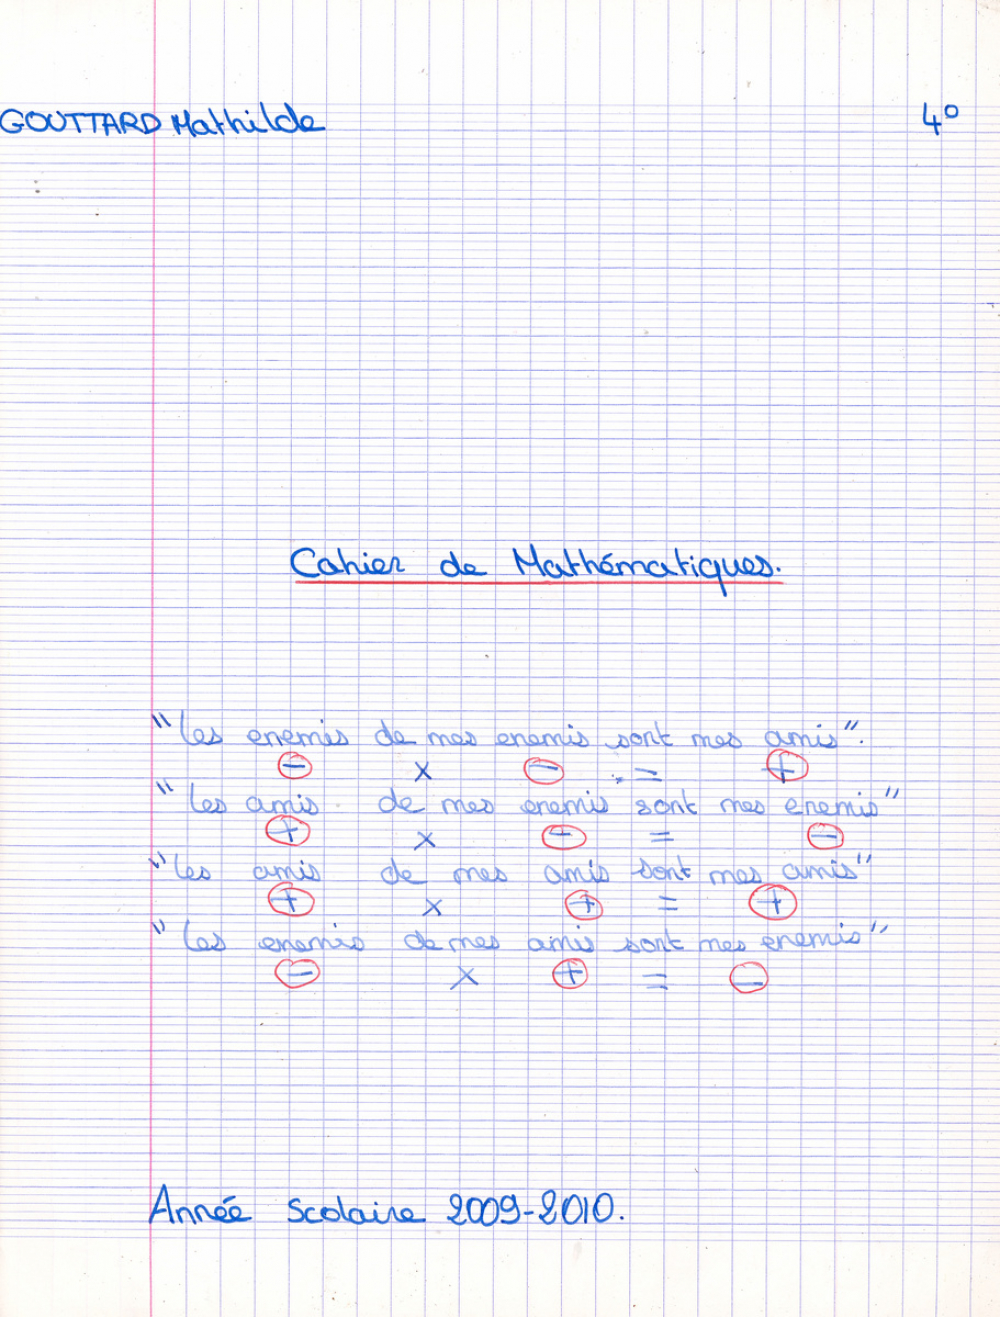 GOUTTARD Mathilde 4°
Cahier de Mathématiques.
"Les enemis de mes enemis sont mes amis".
- × - = +
"Les amis de mes enemis sont mes enemis"
+ × - = -
"Les amis de mes amis sont mes amis"
+ × + = +
"Les enemis de mes amis sont mes enemis"
- × + = -
Année scolaire 2009-2010.